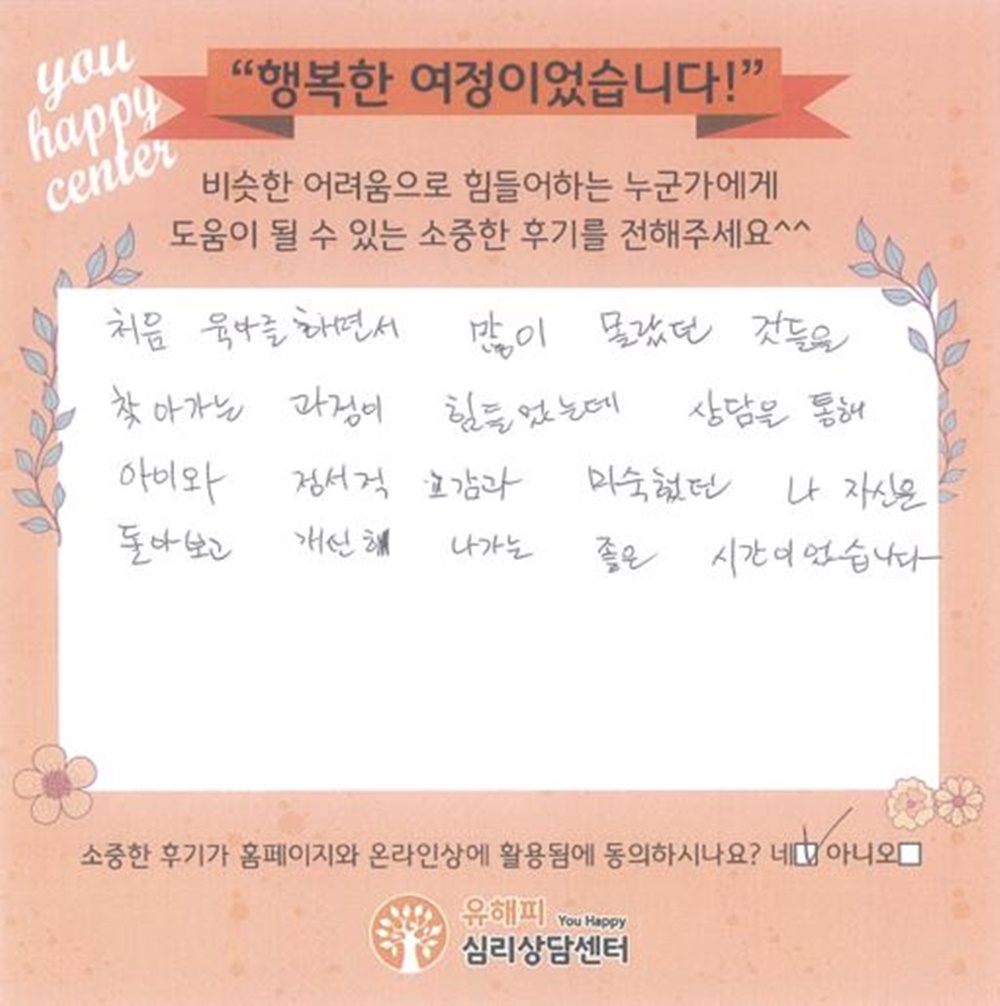 you
happy
center
“행복한 여정이었습니다!”
비슷한 어려움으로 힘들어하는 누군가에게
도움이 될 수 있는 소중한 후기를 전해주세요^^
처음 육아를 하면서 많이 몰랐던 것들을
찾아가는 과정이 힘들었는데 상담을 통해
아이와 정서적 교감과 미숙했던 나 자신을
돌아보고 개선해 나가는 좋은 시간이었습니다
소중한 후기가 홈페이지와 온라인상에 활용됨에 동의하시나요? 네 아니오
유해피 You Happy
심리상담센터